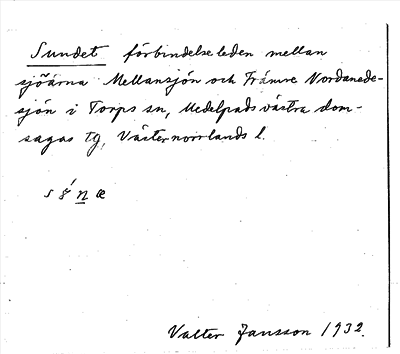 Sundet förbindelseleden mellan
sjöarna Mellansjön och Främre Nordanede-
sjön i Torps sn, Medelpads västra dom-
sagas tg, Västernorrlands l.
Valter Jansson 1932.